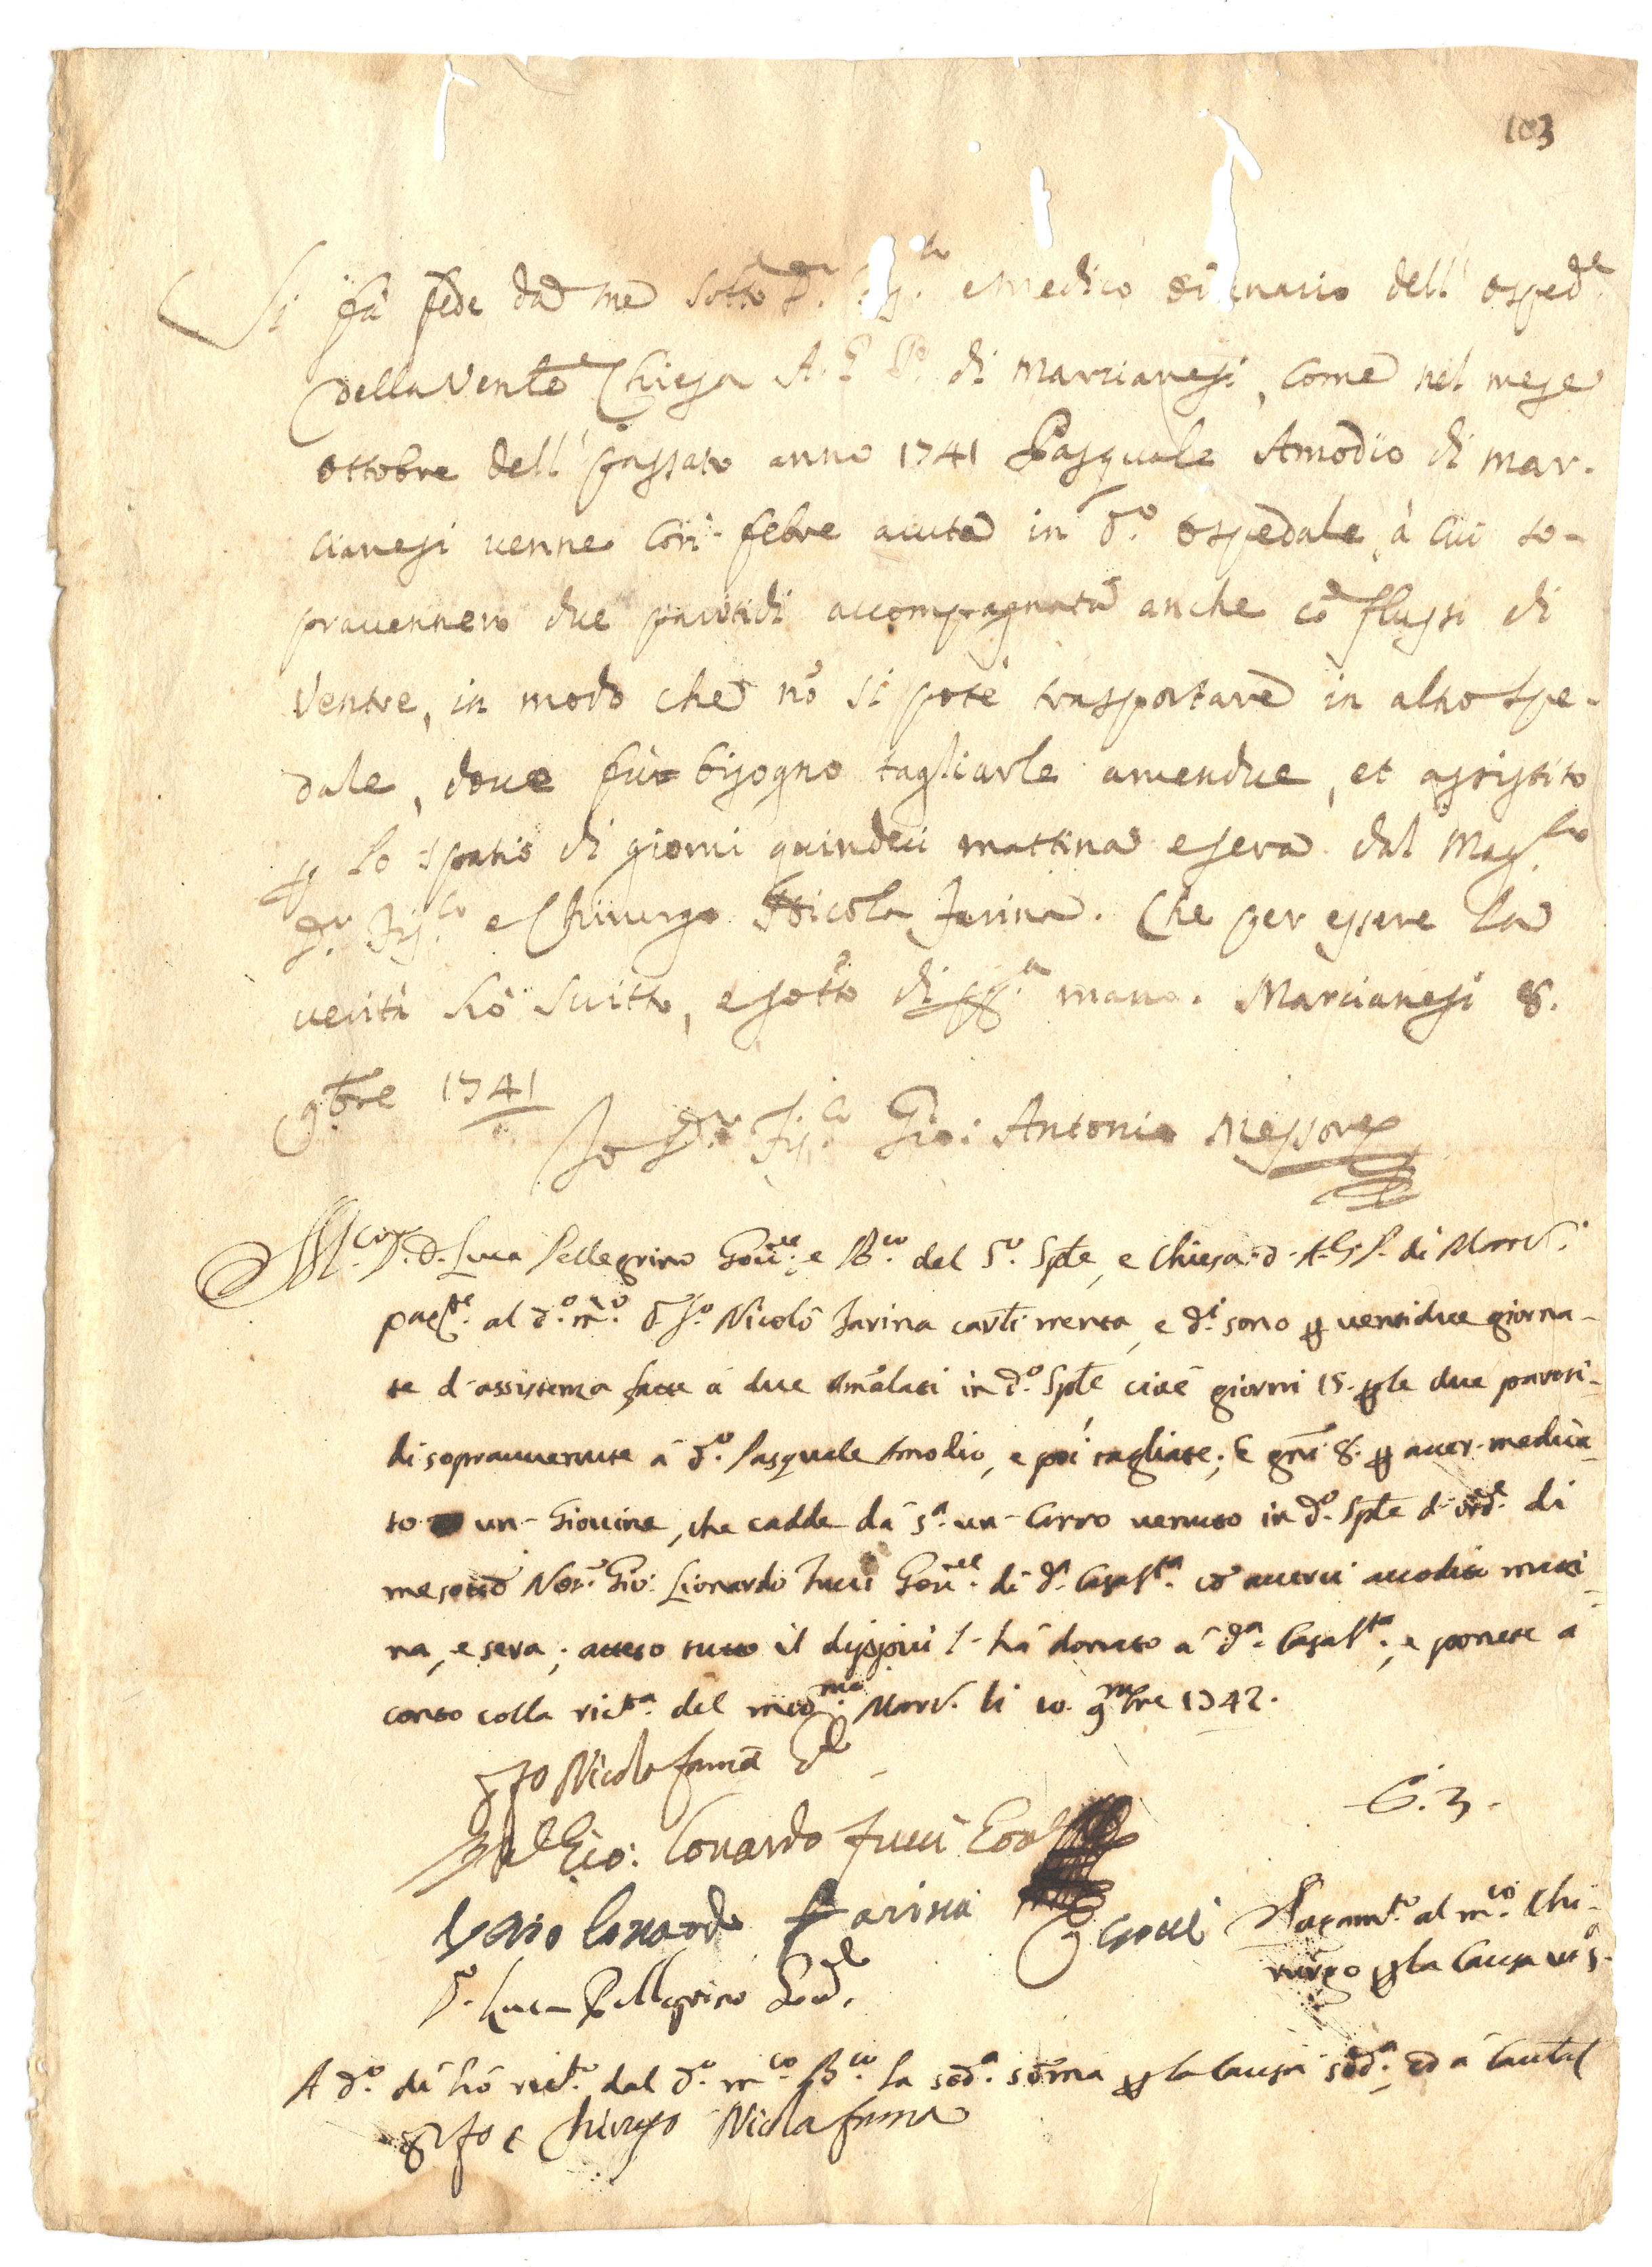 103
Si fà fede da me sotto D.r Fis.co e Medico ordinario dell' osped.le
della Ven.le Chiesa A. G. P. di Marcianesi, come nel mese
ottobre dell' passato anno 1741 Pasquale Amodio di Mar-
cianesi venne con febre acuta in d.o ospedale, à cui so-
pravennero due parotidi accompagnata anche cō flussi di
ventre, in modo che nō si potè trasportare in altro spe-
dale, dove fù bisogno tagliarle amendue, et assistito
p lo spatio di giorni quindeci mattina e sera dal Mag.co
D.r Fis.co e Chirurgo Nicola Farina. Che per essere la
verità hò scritto, e sotto di pp.a mano. Marcianesi 8.
9bre 1741
Io D.r Fis.co Gio: Antonio Messore
M.co D.r D. Luca Pellegrino Gov.re e B.co del S.o Sp̄le, e Chiesa d. A. G. P. di Marc.i
pag.te al d.o m.o D. F.o Nicolò Farina carl. trenta, e d.i sono p ventidue giorna-
te d'assistenza fatte à due Amālati in d.o Sp̄le cioè giorni 15. p le due paroti-
di sopravvenute à d.o Pasquale Amodio, e poi tagliate; E gni 8. p aver medica-
to un Giovine, che cadde da s.a un Carro venuto in d.o Sp̄le d'ord.e di
me sotto Not.r Gio: Lionardo Fucci Gov.re di d.a Casa S.ta cō averci accodito mati-
na, e sera; atteso tutto il dippiù l'hà donato à d.a Casa S.ta, e ponete à
conto colla ric.ta del med.mo Marc. li 10. 9mbre 1742.
D.r Fo Nicola Farina
N.r Gio: Lonardo Fucci Gov.
Lonardo Farina
D.r Luca Pellegrino Gov.
C. 3.
Pagam.to al m.co Chi-
rurgo p la Causa ut s.
A d.o dì hò ric.to dal d.o m.co B.co la sod.a sōma p la Causa sod.a, ed à Cautel
D.r Fo e Chirurgo Nicola Farina